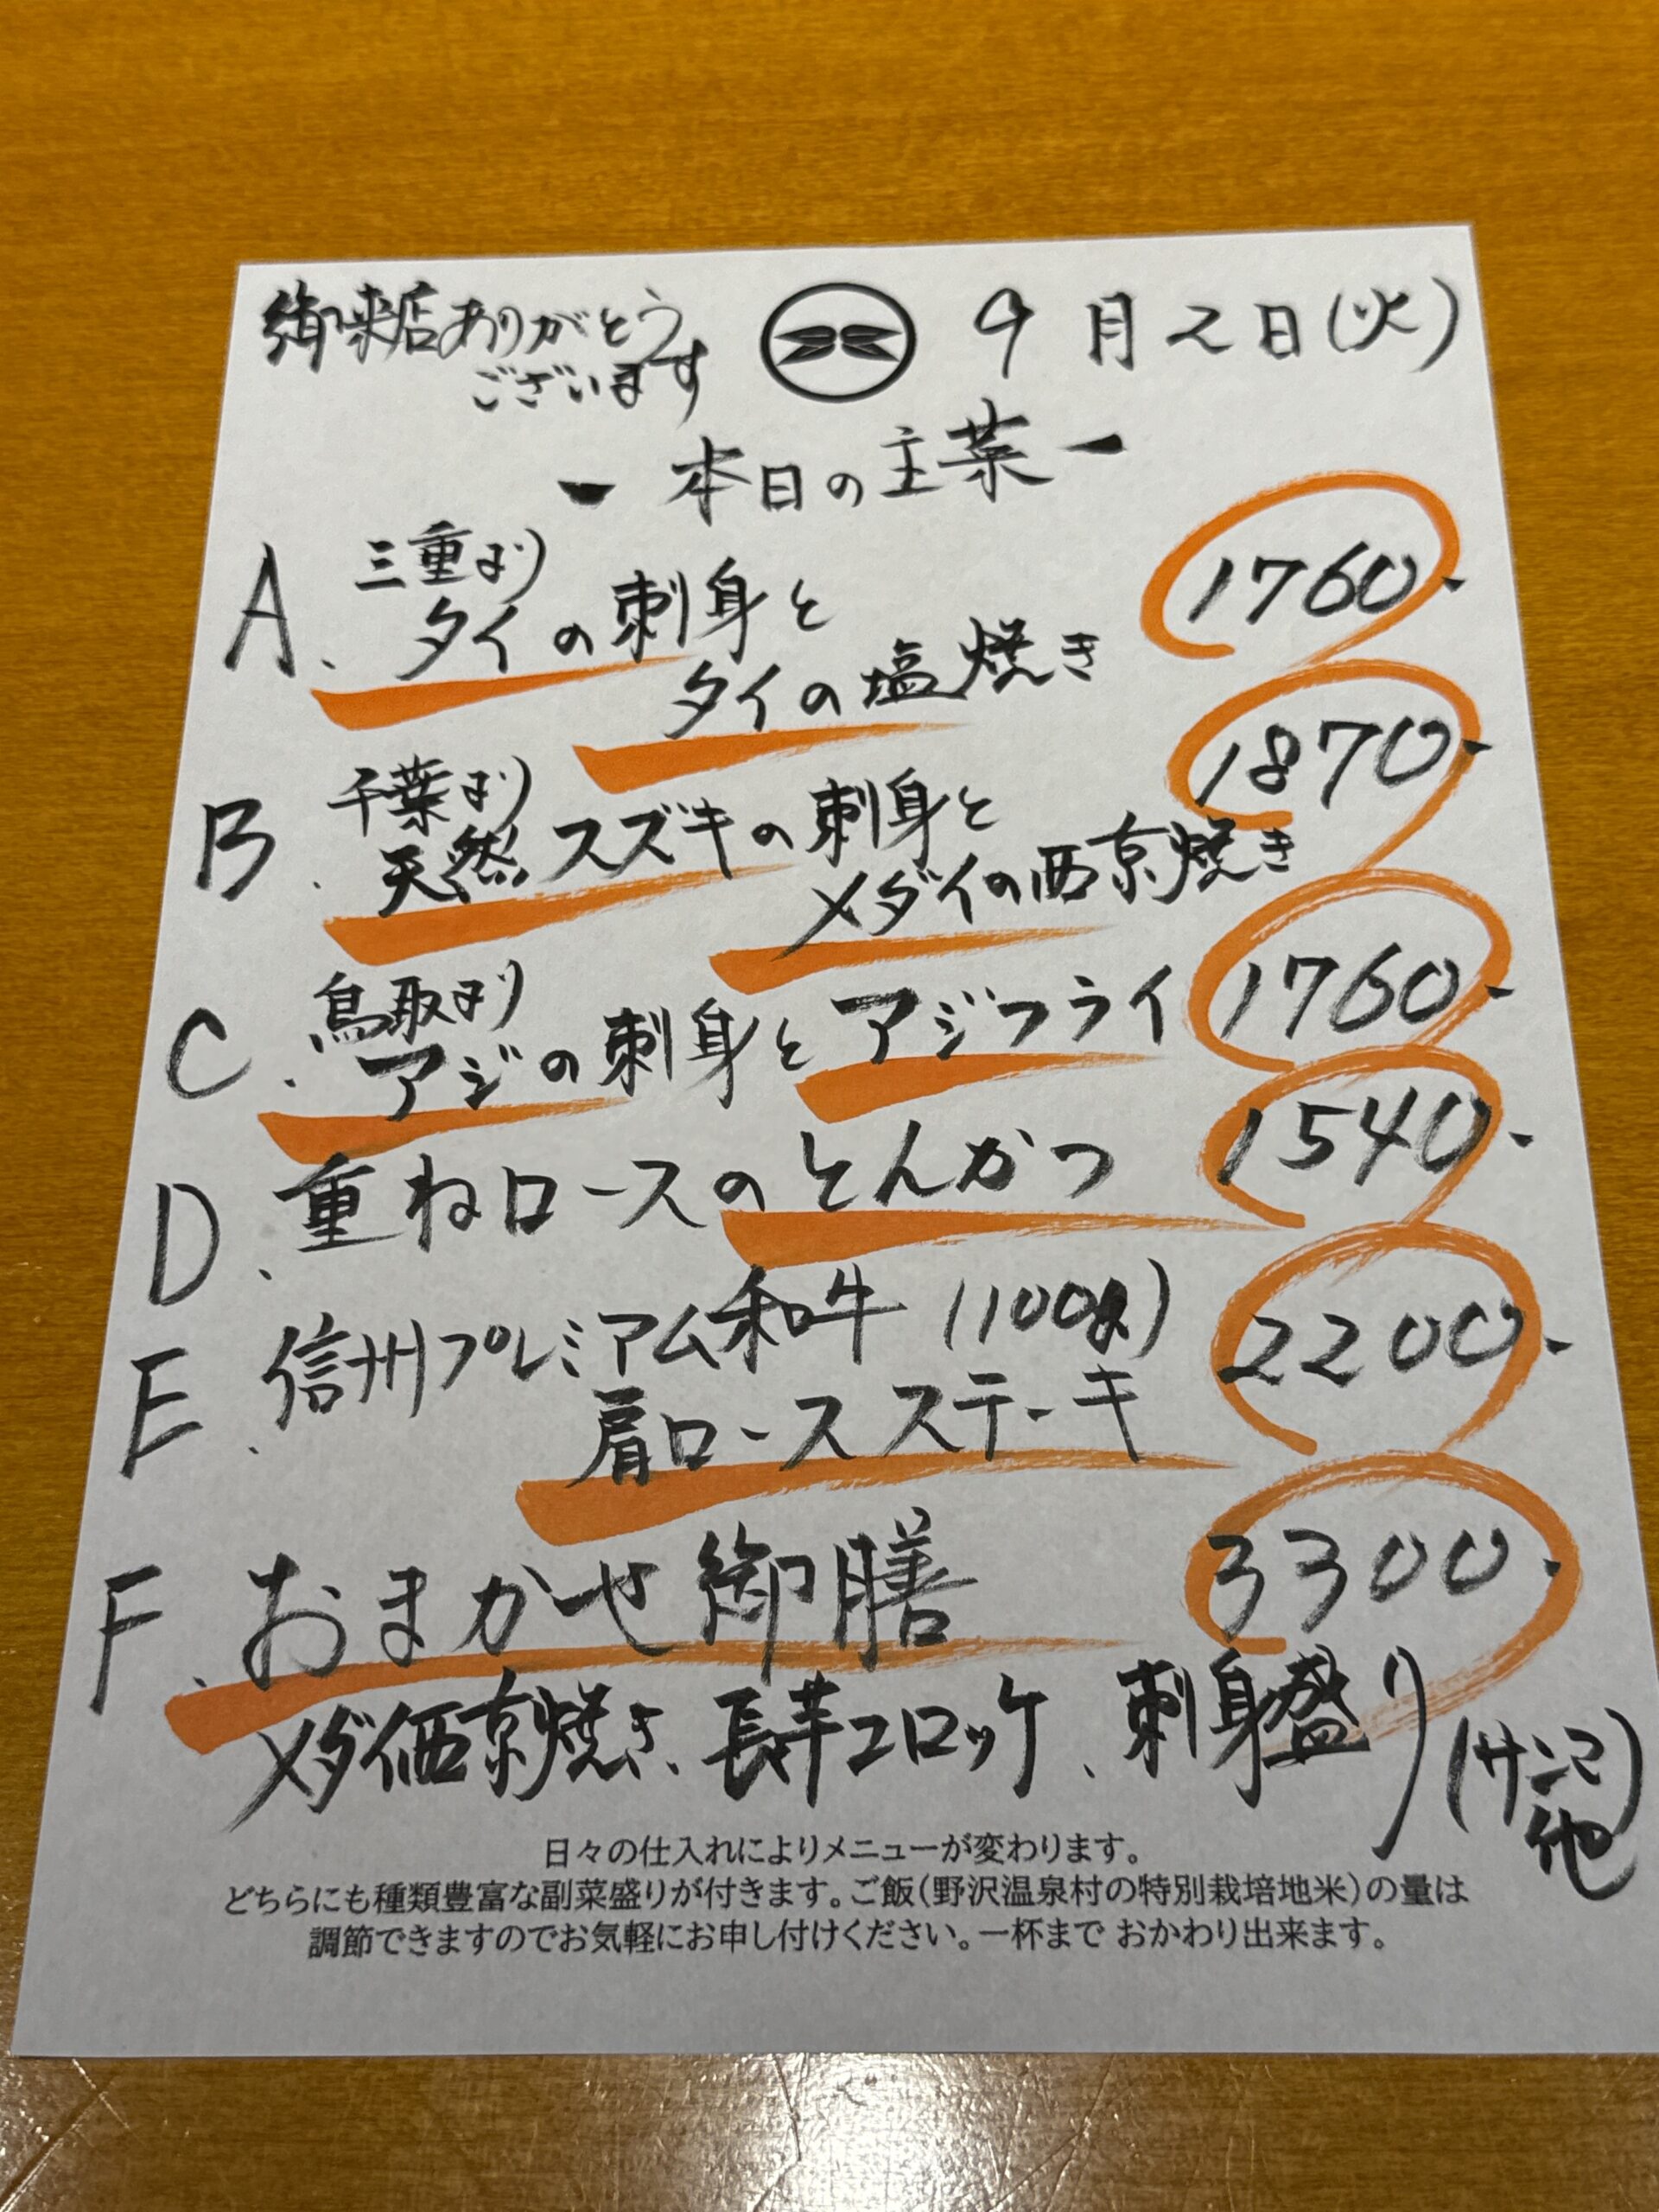 御来店ありがとう
ございます
9月2日(火)
- 本日の主菜 -
A. 三重より
タイの刺身と
タイの塩焼き
1760.-
B. 千葉より
天然スズキの刺身と
メダイの西京焼き
1870.-
C. 鳥取より
アジの刺身とアジフライ
1760.-
D. 重ねロースのとんかつ
1540.-
E. 信州プレミアム和牛 (100g)
肩ロースステーキ
2200.-
F. おまかせ御膳
3300.-
メダイ西京焼き、長芋コロッケ、刺身盛り(サンマ他)
日々の仕入れによりメニューが変わります。
どちらにも種類豊富な副菜盛りが付きます。ご飯(野沢温泉村の特別栽培地米)の量は
調節できますのでお気軽にお申し付けください。一杯まで おかわり出来ます。